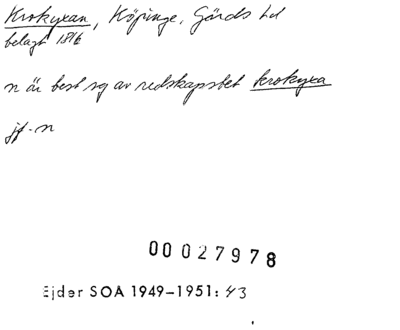 Krokyxan, Köpinge, Gärds hd
belagt 1816
n är best sg av redskapsbet krokyxa
jf-n
00027978
Ejder SOA 1949-1951: 43